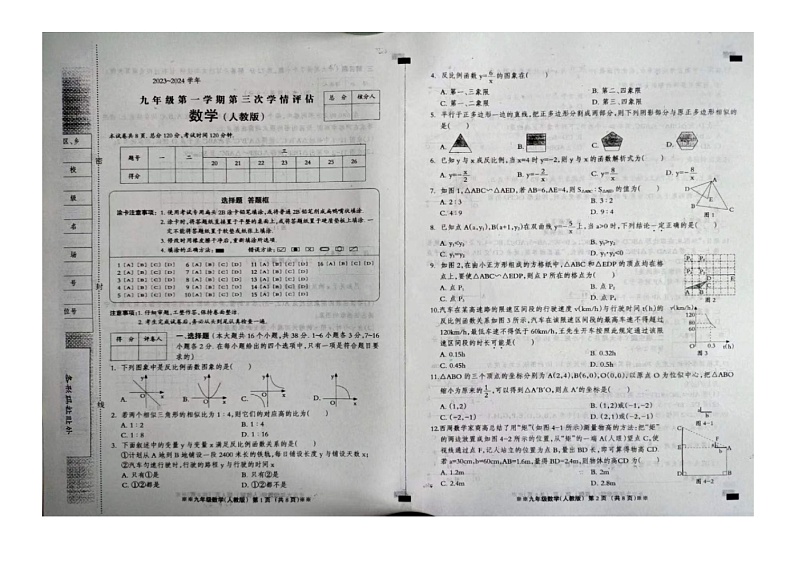 2023-2024学年
九年级第一学期第三次学情评估
数学（人教版）
总 分 核分人
本试卷共8页.总分120分.考试时间120分钟.
题号 一 二 三
20 21 22 23 24 25 26
得分
选择题 答题框
涂卡注意事项:1.使用考试专用扁头2B涂卡铅笔填涂,或将普通2B铅笔削成扁鸭嘴状填涂.
2.涂卡时,将答题纸直接置于平整的桌面上,或将答题纸置于硬质垫板上填涂.一
定不能将答题纸置于软垫或纸张上填涂.
3.修改时用橡皮擦干净后,重新填涂所选项.
4.填涂的正确方法: 错误方法:
1 [A] [B] [C] [D]
5 [A] [B] [C] [D]
注意事项:1.仔细审题,工整作答,保持卷面整洁.
2.考生完成试卷后,务必从头到尾认真检查一遍.
得 分 评卷人
一、选择题(本大题共16个小题,共38分.1~6小题各3分,7~16
小题各2分.在每小题给出的四个选项中,只有一项是符合题目要
求的)
1. 下列图象中是反比例函数图象的是( )
A. B. C. D.
2. 若两个相似三角形的相似比为1∶4,则它们的对应高的比为( )
A. 1∶2 B. 1∶4
C. 1∶8 D. 1∶16
3. 下面叙述中的变量y与变量x满足反比例函数关系的是( )
①计划从A地到B地铺设一段2400米长的铁轨,每日铺设长度y与铺设天数x;
②汽车匀速行驶时,行驶的路程y与行驶的时间x
A. 只有①是 B. 只有②是
C. ①②都是 D. ①②都不是
九年级数学(人教版) 第1页 (共8页)
4. 反比例函数y=6/x的图象在( )
A. 第一、三象限 B. 第二、四象限
C. 第一、二象限 D. 第三、四象限
5. 平行于正多边形一边的直线,把正多边形分割成两部分,则下列图形阴影部分与原正多边形相似的
是( )
A. B. C. D.
6. 已知y与x成反比例,当x=4时y=-2,则y与x的函数解析式为( )
A. y=-x/2 B. y=-2/x C. y=8/x D. y=-8/x
7. 如图1,△ABC∽△AED,若AB=6,AE=4,则S△ABC∶S△AED的值为( )
A. 2∶3 B. 3∶2
C. 4∶9 D. 9∶4
图1
8.
A. y₁<y₂ B. y₁>y₂
C. y₁=y₂ D. y₁+y₂<0
9. 如图2,在由小正方形组成的方格纸中,△ABC和△EDP的顶点均在格
点上,要使△ABC∽△EDP,则点P所在的格点为( )
A. 点P₁ B. 点P₂
C. 点P₃ D. 点P₄
图2
10.汽车在某高速路的限速区间段的行驶速度v(km/h)与行驶时间t(h)的
反比例函数关系如图3所示,汽车在该限速区间段的最高车速不得超过
120km/h,最低车速不得低于60km/h,王先生开车按照此规定通过该限
速区间段的时长可能是( )
A. 0.15h B. 0.32h
C. 0.45h D. 0.54h
v(km/h)
120
80
60
O t(h)
图3
11.△ABO的三个顶点的坐标分别为A(2,4),B(6,0),O(0,0),以原点O为位似中心,把△ABO
缩小为原来的1/2,可以得到△A'B'O,则点A'的坐标是( )
A. (1,2) B. (1,2)或(-1,-2)
C. (-2,-1) D. (2,1)或(-2,-1)
12.西周数学家商高总结了用“矩”(如图4-1所示)测量物高的方法:把“矩”
的两边放置成如图4-2所示的位置,从“矩”的一端A(人眼)望点C,使
视线通过点F,记人站立的位置为点B,量出BD长,即可算得物高CD
若a=30cm,b=60cm,AB=1.6m,量得BD=2.4m,则物体的高CD为( )
A. 1.2m B. 2m
C. 2.4m D. 2.8m
图4-1
图4-2
九年级数学(人教版) 第2页 (共8页)